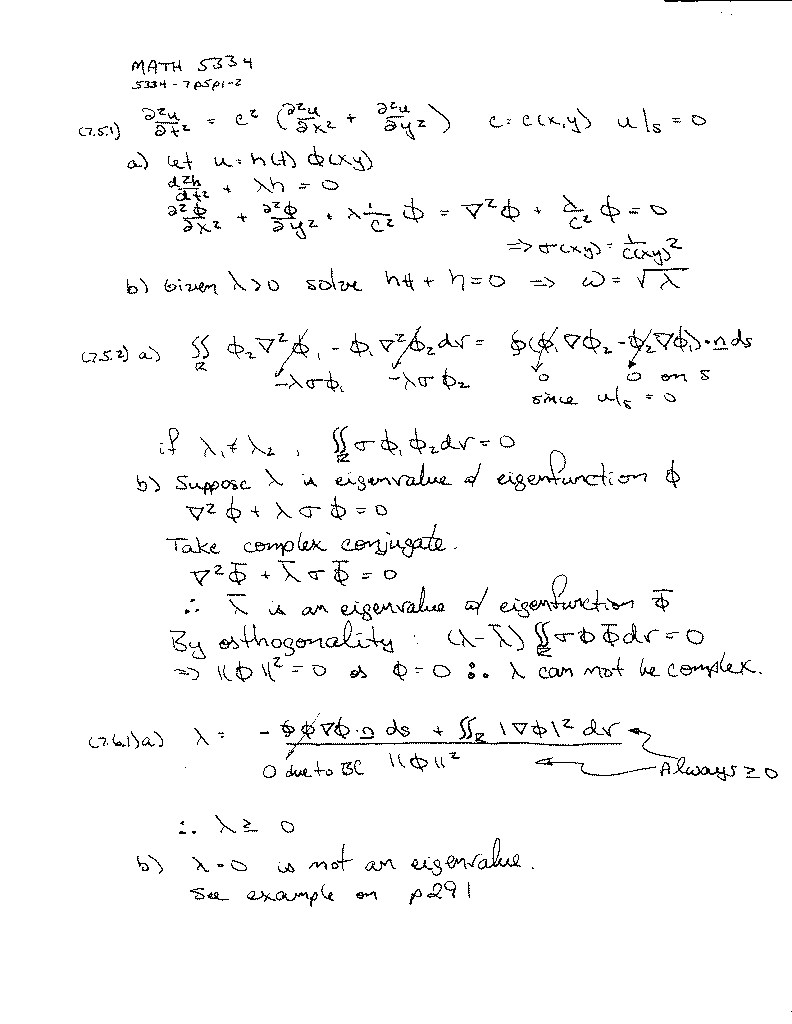 MATH 5334
5334-7p5p1-2
(7.5.1) ∂²u/∂t² = c² (∂²u/∂x² + ∂²u/∂y²)  c = c(x,y)  u|s = 0
a) let u = h(t) ϕ(xy)
d²h/dt² + λh = 0
∂²ϕ/∂x² + ∂²ϕ/∂y² + λ 1/c² ϕ = ∇²ϕ + λ/c² ϕ = 0
⇒ σ(xy) = 1/c(xy)²
b) Given λ>0 solve h'' + h = 0 ⇒ ω = √λ
(7.5.2) a) ∬R ϕ₂∇²ϕ₁ - ϕ₁∇²ϕ₂ dv = ∮(ϕ₁∇ϕ₂ - ϕ₂∇ϕ₁)·n ds
-λσϕ₁  -λσϕ₂  0  0 on s
since u|s = 0
if λ₁ ≠ λ₂ , ∬R σϕ₁ϕ₂dv = 0
b) Suppose λ is eigenvalue w/ eigenfunction ϕ
∇²ϕ + λσϕ = 0
Take complex conjugate.
∇²ϕ̄ + λ̄σϕ̄ = 0
∴ λ̄ is an eigenvalue w/ eigenfunction ϕ̄
By osthogonality : (λ-λ̄) ∬R σϕϕ̄dv = 0
⇒ ||ϕ||² = 0 or ϕ = 0 ∴ λ can not be complex.
(7.6.1)a) λ = -∮ϕ∇ϕ·n ds + ∬R |∇ϕ|² dv
0 due to BC  ||ϕ||²  Always ≥ 0
∴ λ ≥ 0
b) λ=0 is not an eigenvalue.
See example on p291